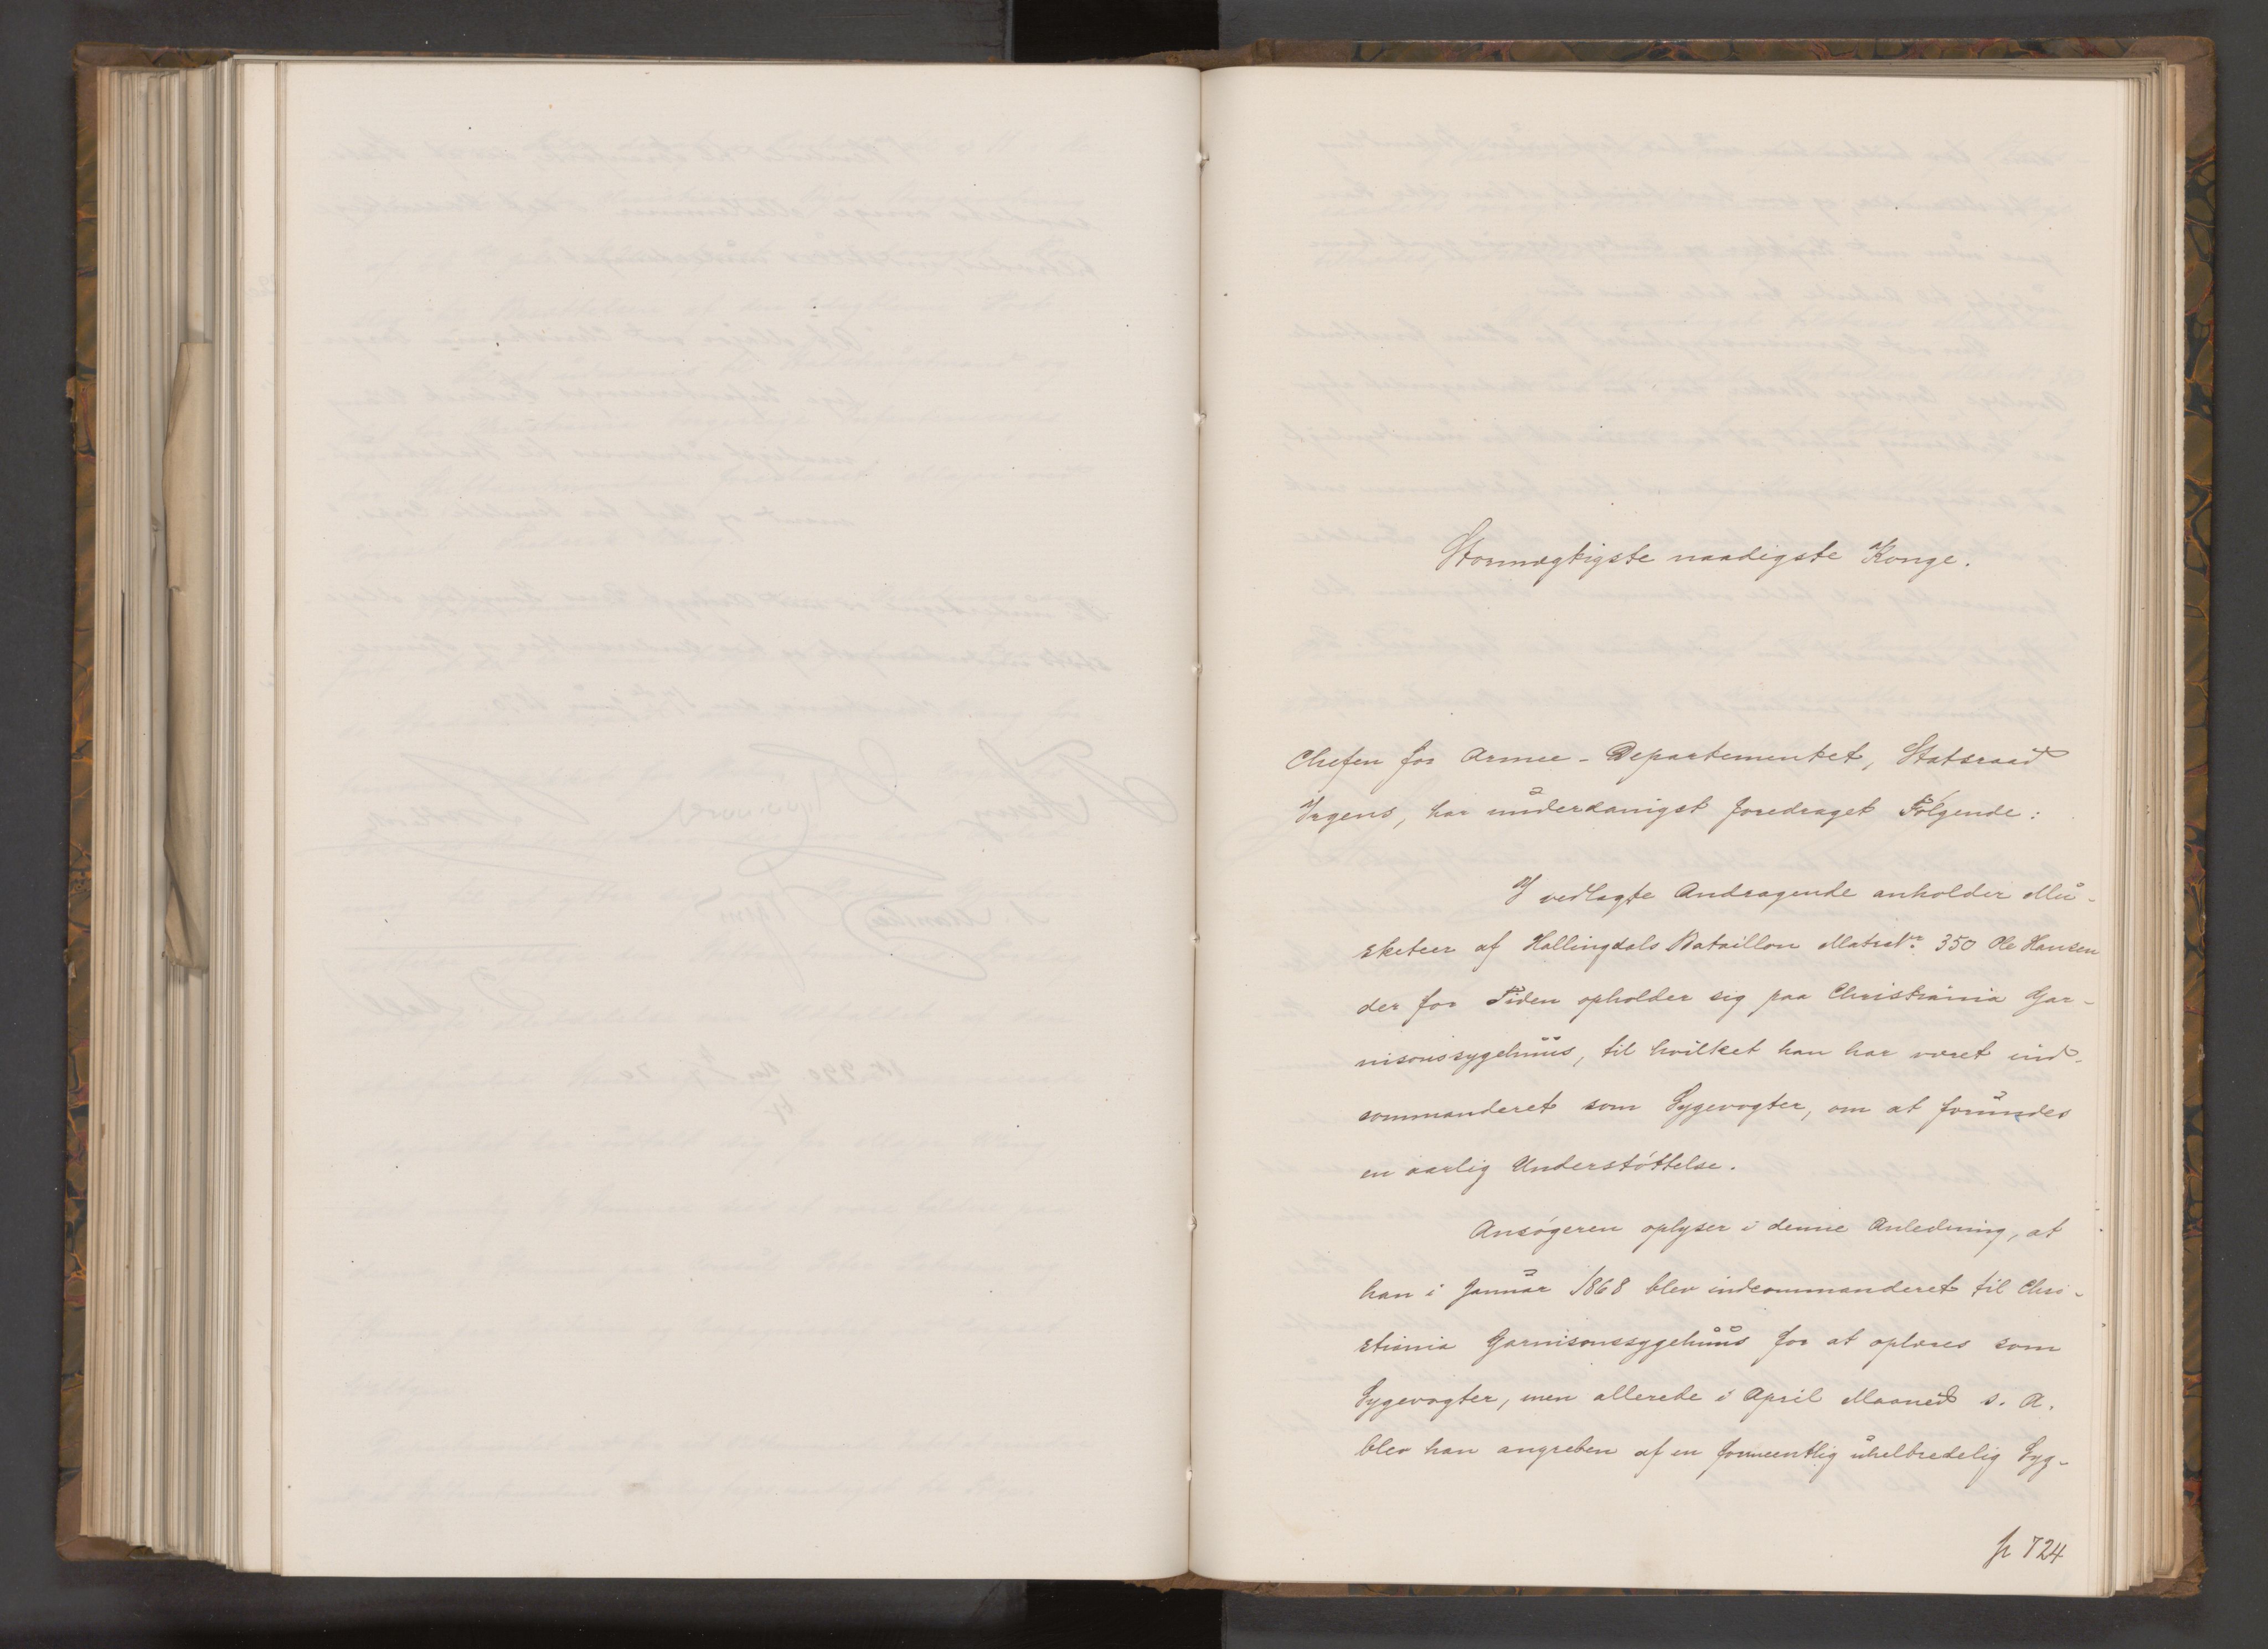 Stormægtigste naadigste Konge.
Chefen for Armee-Departementet, Statsraad
Irgens, har underdanigst foredraget Følgende:
I vedlagte Andragende anholder Mu-
sketeer af Hallingdals Bataillon Matr.Nr. 350 Ole Hansen
der for Tiden opholder sig paa Christiania Gar-
nisonssygehuus, til hvilket han har været ind-
commanderet som Sygevogter, om at forundes
en aarlig Understøttelse.
Ansøgeren oplyser i denne Anledning, at
han i Januar 1868 blev indcommanderet til Chri-
stiania Garnisonssygehuus for at oplæres som
Sygevogter, men allerede i April Maaned s. A.
blev han angreben af en formeentlig uhelbredelig Syg-
724